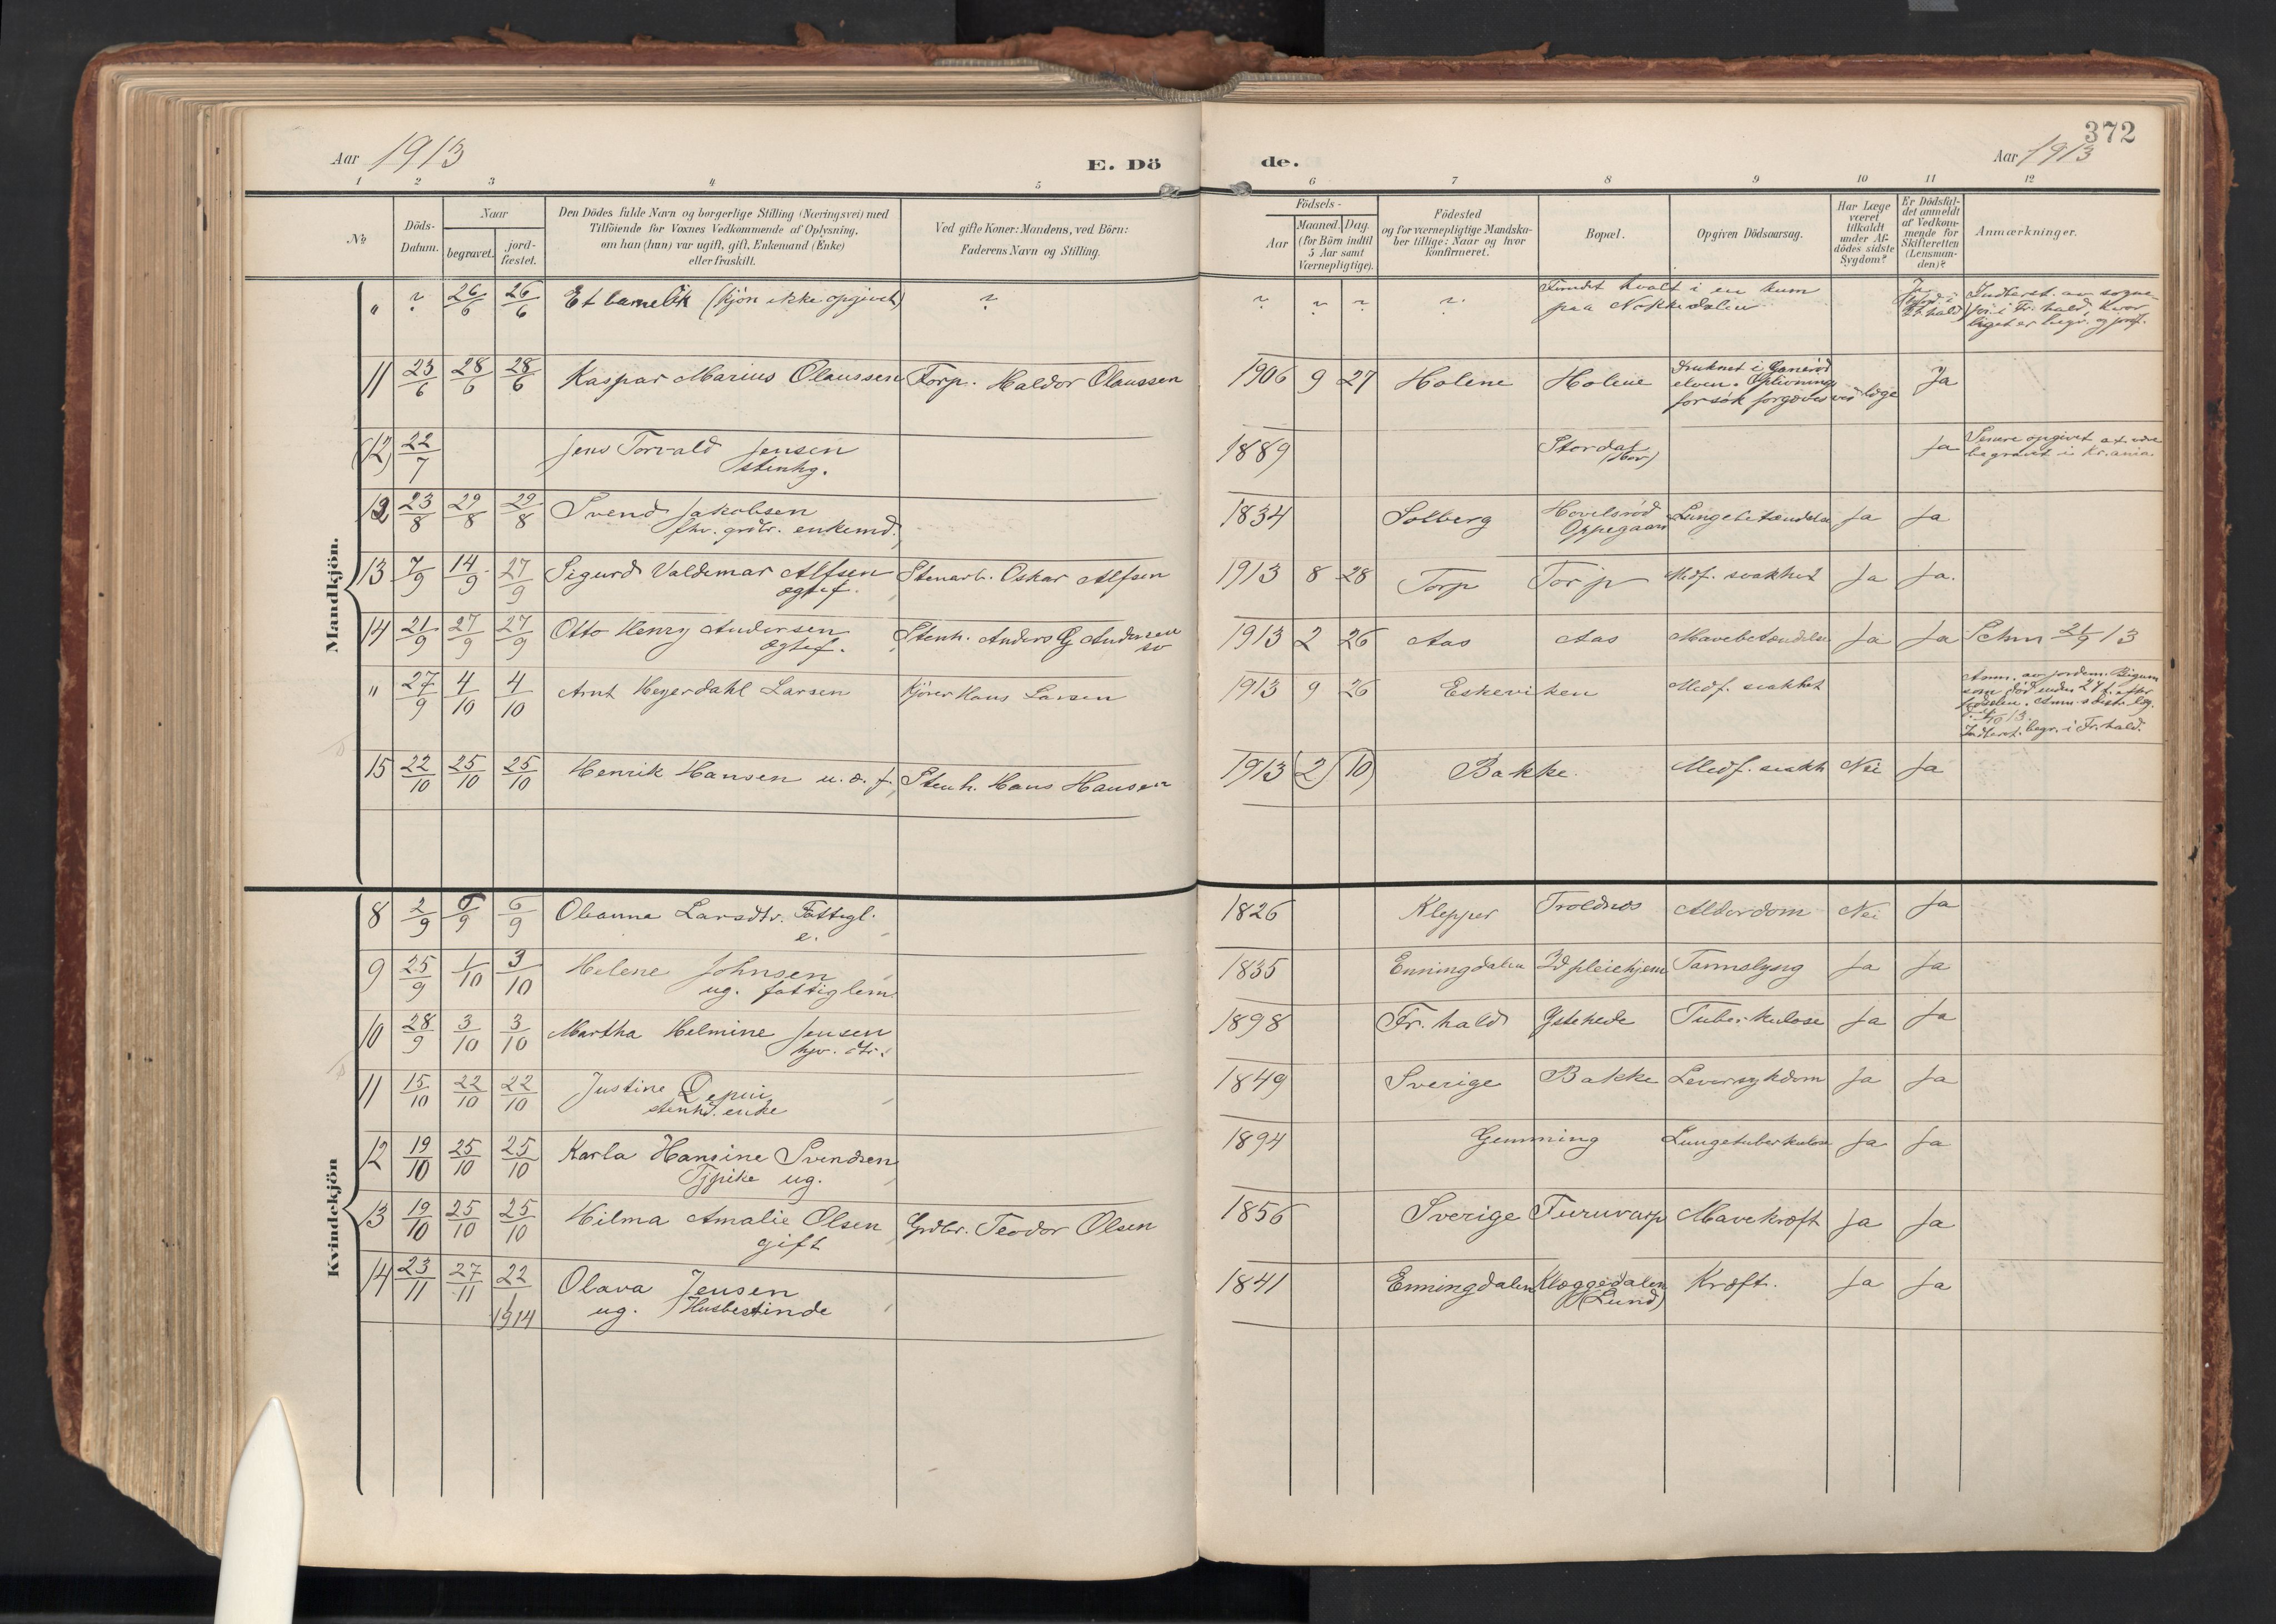 372
Aar 1913
E. Döde.
Aar 1913
1 2 3 4 5 6 7 8 9 10 11 12
No
Döds-Datum.
Naar
begravet.
jordfæstet.
Den Dödes fulde Navn og borgerlige Stilling (Næringsvei) med
Tilföiende for Voxnes Vedkommende af Oplysning,
om han (hun) var ugift, gift, Enkemand (Enke)
eller fraskilt.
Ved gifte Koner: Mandens, ved Börn:
Faderens Navn og Stilling.
Födsels-
Aar
Maaned. Dag.
(for Börn indtil
5 Aar samt
Værnepligtige).
Födested
og for værnepligtige Mandska-
ber tillige: Naar og hvor
konfirmeret.
Bopæl.
Opgiven Dödsaarsag.
Har Læge
været
tilkaldt
under Af-
dödes sidste
Sygdom?
Er Dödsfal-
det anmeldt
af Vedkom-
mende for
Skifteretten
(Lensman-
den)?
Anmærkninger.
Mandkjön.
" ? 26/6 26/6 Et barnelik (kjön ikke opgivet) ? ? ? ? ? Fundet kvalt i en kum
paa Nokkedalen
Ja
Fr.hald
Indberet. av sogne-
pr. i Fr.hald, hvor
liget er begr. og jordf.
11 23/6 28/6 28/6 Kaspar Marius Olaussen Torp. Haldor Olaussen 1906 9 27 Holene Holene Druknet i
elven. Oplivnings
forsök forgæves ved læge Ja
(12) 22/7 Jens Torvald Jensen
stenhg. 1889 Stordal Ja Senere opgivet at være
begravet i Kr.ania
12 23/8 29/8 29/8 Svend Jakobsen
fhv. grdbr. enkemd. 1834 Solberg Hovelsröd
Oppegaard Lungebetændelse Ja Ja
13 7/9 14/9 27/9 Sigurd Valdemar Alfsen
ægtef. Stenarb. Oskar Alfsen 1913 8 28 Torp Torp Medf. svakhet Ja Ja.
14 21/9 27/9 27/9 Otto Henry Andersen
ægtef. Stenh. Anders G Andersen
1913 2 26 Aas Aas Mavebetændelse Ja Ja
" 27/9 4/10 4/10 Arnt Heyerdahl Larsen Kjörer Hans Larsen 1913 9 26 Eskeviken Medf. svakhet
Anm. av jordem.
som död under 24 t. efter
födselen.
Indberet. begr. i Fr.hald.
15 22/10 25/10 25/10 Henrik Hansen u. æ. f. Stenh. Hans Hansen 1913 (2) (10) Bakke. Medf. svakh Nei Ja
Kvindekjön
8 2/9 6/9 6/9 Oleanna Larsdtr. Fattigl.
e. 1826 Klepper Troldnes Alderdom Nei Ja
9 25/9 1/10 3/10 Helene Johnsen
ug. fattiglem. 1835 Enningdalen Id pleiehjem Tarmslyng Ja Ja
10 28/9 3/10 3/10 Martha Helmine Jensen
hjv. dtr. 1898 Fr.hald Ystehede Tuberkulose Ja Ja
11 15/10 22/10 22/10 Justine
stenh. enke 1849 Sverige Bakke Leversykdom Ja Ja
12 19/10 25/10 25/10 Karla Hansine Svendsen
Tjpike ug. 1894 Gemming Lungetuberkulose Ja Ja
13 19/10 25/10 25/10 Hilma Amalie Olsen
gift Grdbr. Teodor Olsen 1856 Sverige Furuvarp Mavekræft Ja Ja
14 23/11 27/11 22/1 1914 Olava Jensen
ug. Husbestinde 1841 Enningdalen Kloggedalen
(Lund) Kræft. Ja Ja